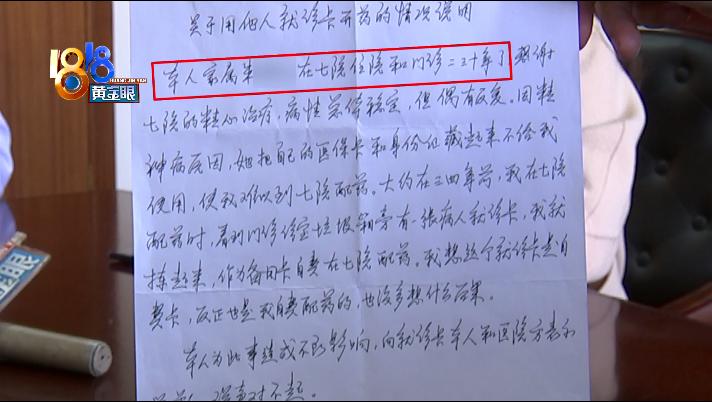 1818
HUANG JIN YAN
黄金眼
关于用他人就诊卡开药的情况说明
本人家属朱 在七院住院和门诊二三十年了 感谢
七院的精心治疗,病性总体稳定,但偶有反复。因精
神病原因,她把自己的医保卡和身份证藏起来不给我
使用,使我难以到七院配药。大约在三四年前,我在七院
配药时,看到门诊诊室垃圾箱旁有一张病人就诊卡,我就
拣起来,作为备用卡自费在七院配药。我想这个就诊卡是自
费卡,反正也是我自费配药的,也没多想什么后果。
本人为此事造成不良影响,向就诊卡本人和医院方表示
对不起。
眼